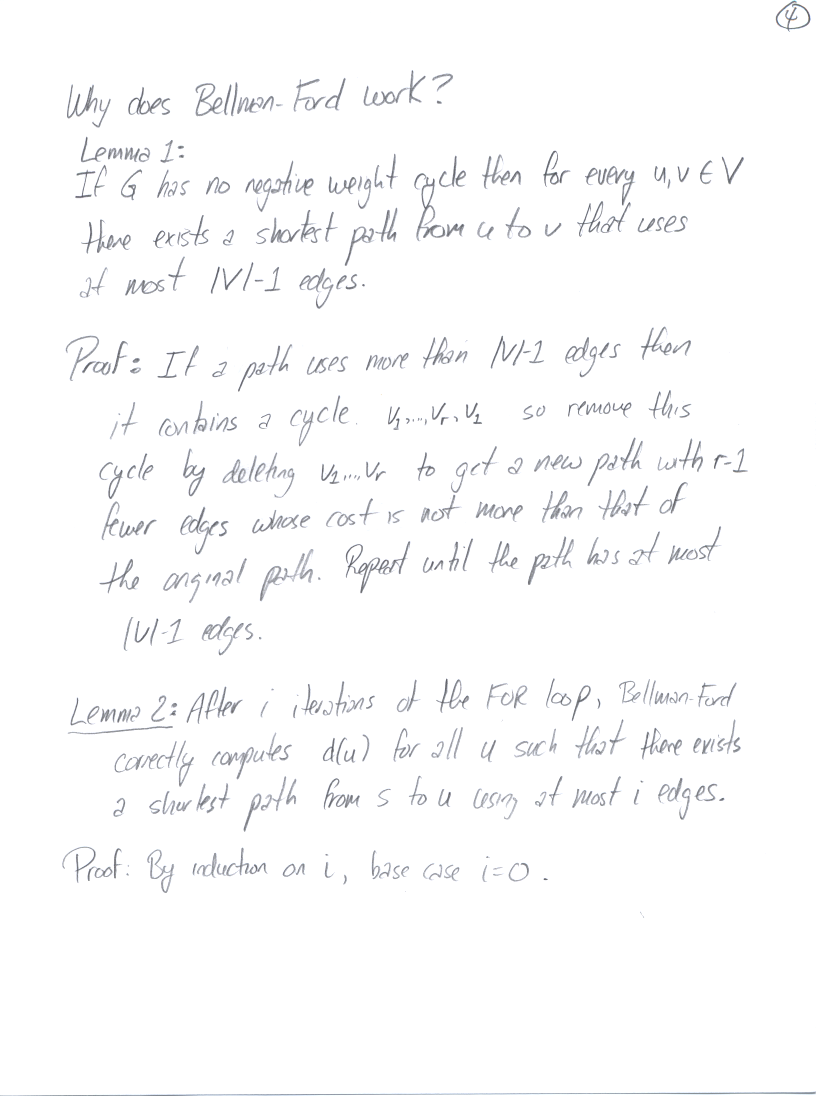 4
Why does Bellman-Ford work?
Lemma 1:
If G has no negative weight cycle then for every u,v ∈ V
there exists a shortest path from u to v that uses
at most |V|-1 edges.
Proof: If a path uses more than |V|-1 edges then
it contains a cycle. v₁,...,vᵣ,v₁ so remove this
cycle by deleting v₁...vᵣ to get a new path with r-1
fewer edges whose cost is not more than that of
the original path. Repeat until the path has at most
|V|-1 edges.
Lemma 2: After i iterations of the FOR loop, Bellman-Ford
correctly computes d(u) for all u such that there exists
a shortest path from s to u using at most i edges.
Proof: By induction on i, base case i=0.